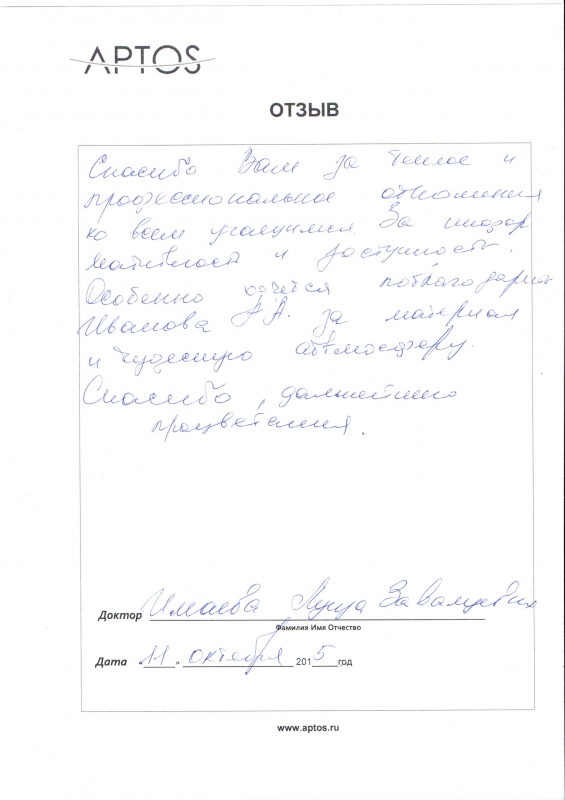 APTOS
ОТЗЫВ
Спасибо Вам за теплое и
профессиональное отношения
ко всем учащимся. За инфор
мативность и доступность.
Особенно хочется поблагодарить
Иванова А.А. за материал
и чудесную атмосферу.
Спасибо, дальнейшего
процветания.
Доктор Имаева
Фамилия Имя Отчество
Дата "11" октября 2015 год
www.aptos.ru